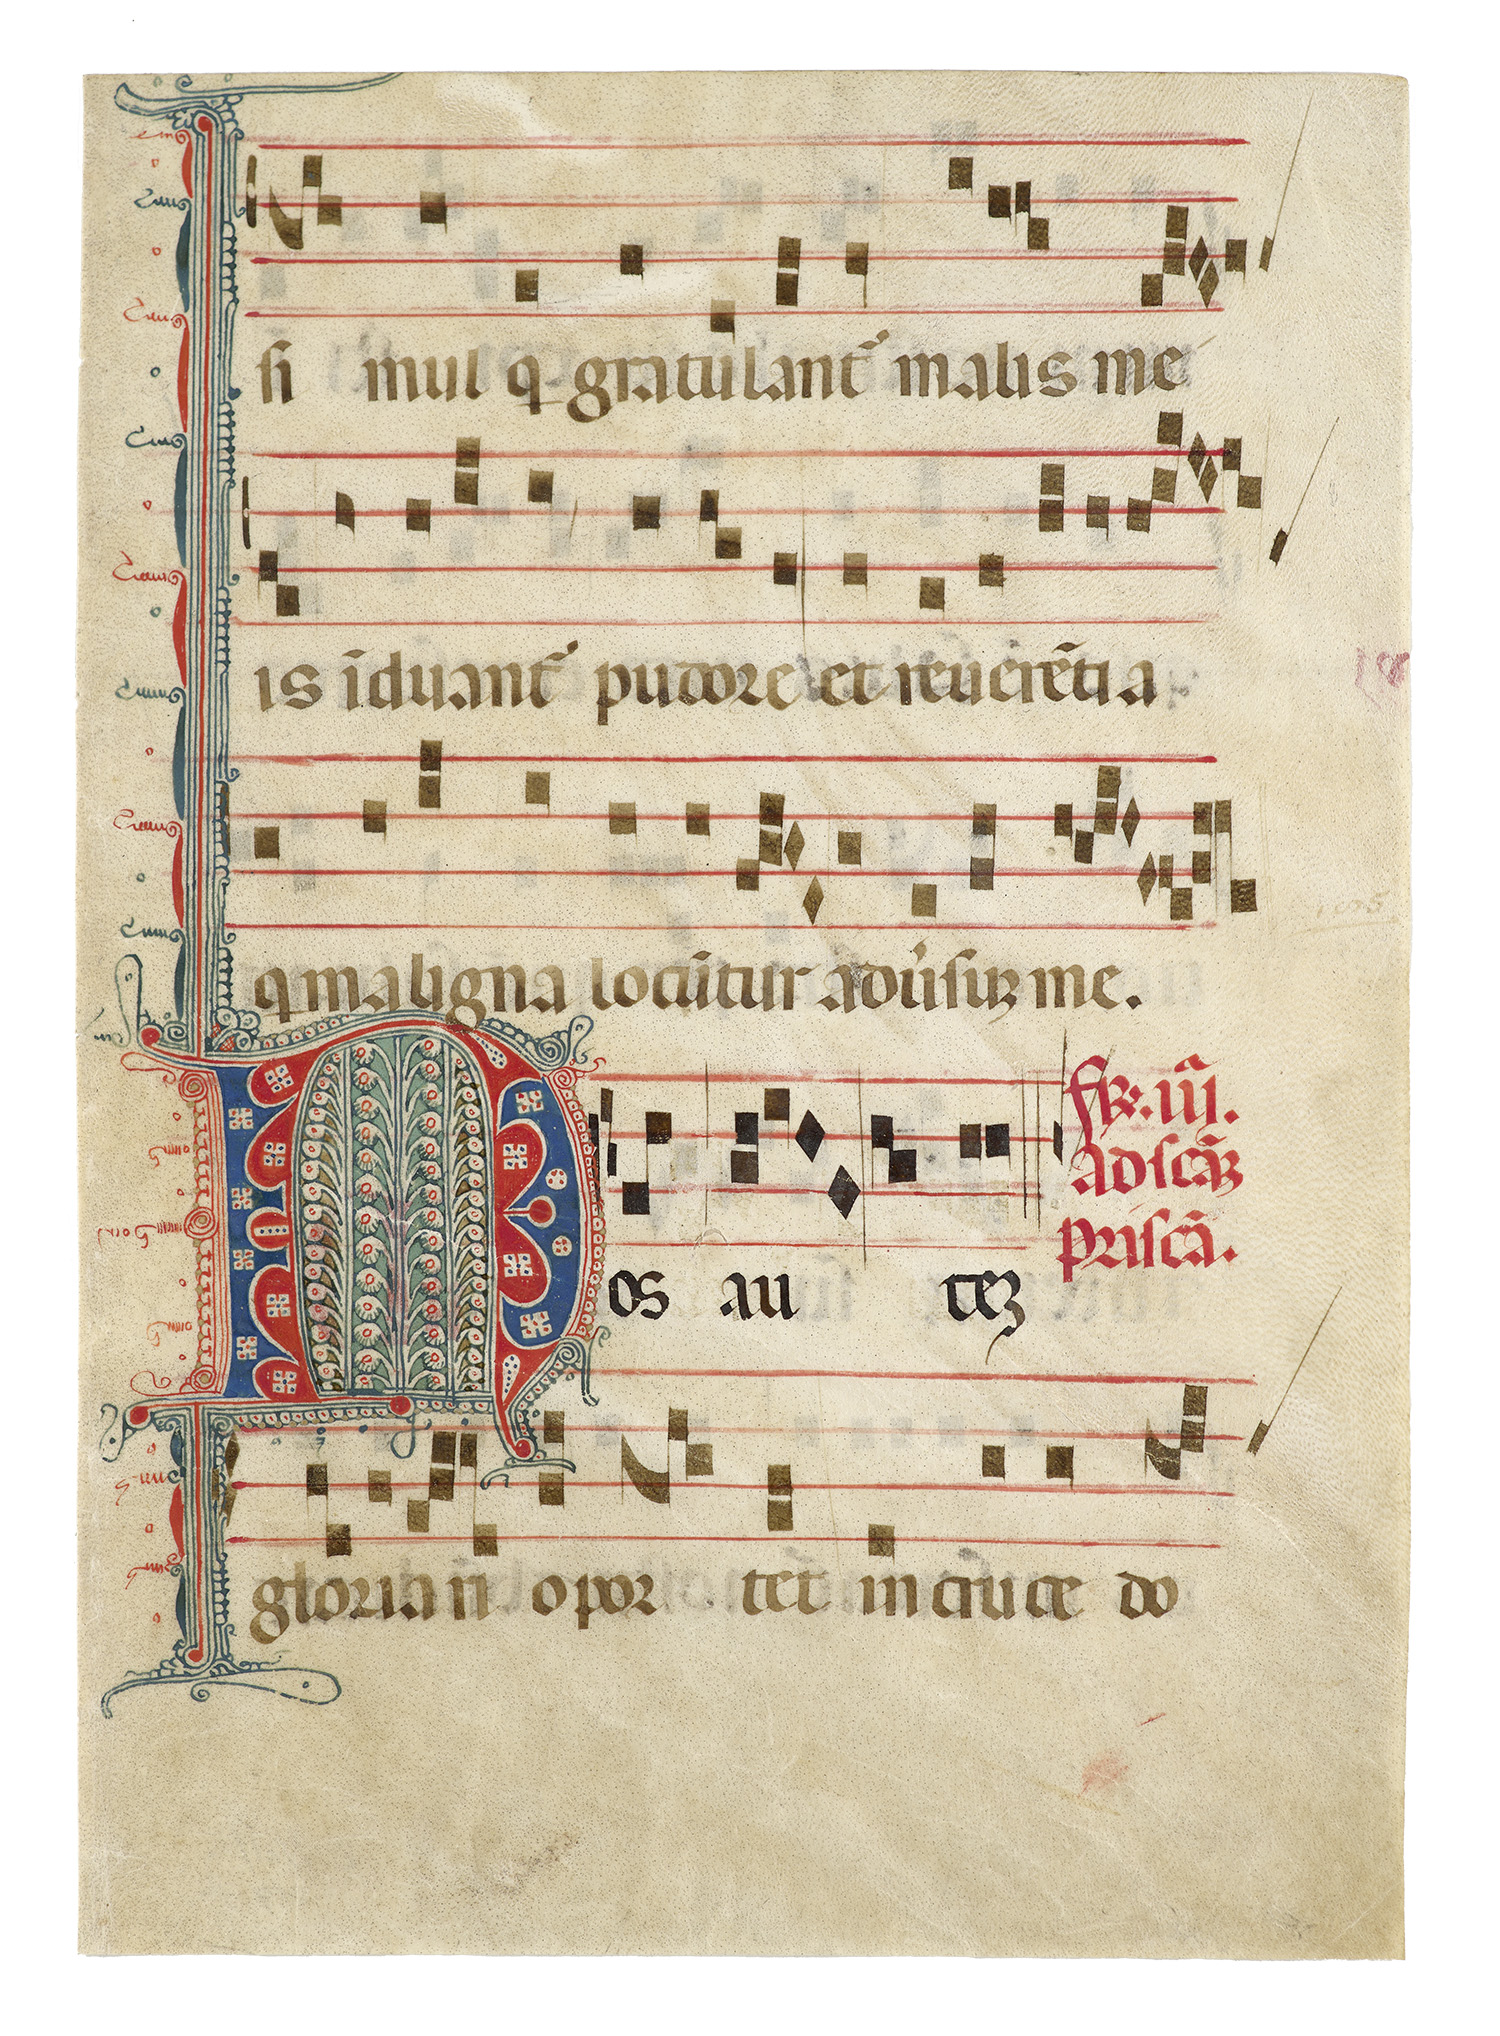 si mul q̲ gratulant᷑ malis me
is īduant᷑ pudore et reuerētia
q̲ maligna locūtur adũsuꝫ me.
Nos au teꝫ
Fr̄. iij.
ad scāꝫ
priscā.
gloriari opor tet in cruce do